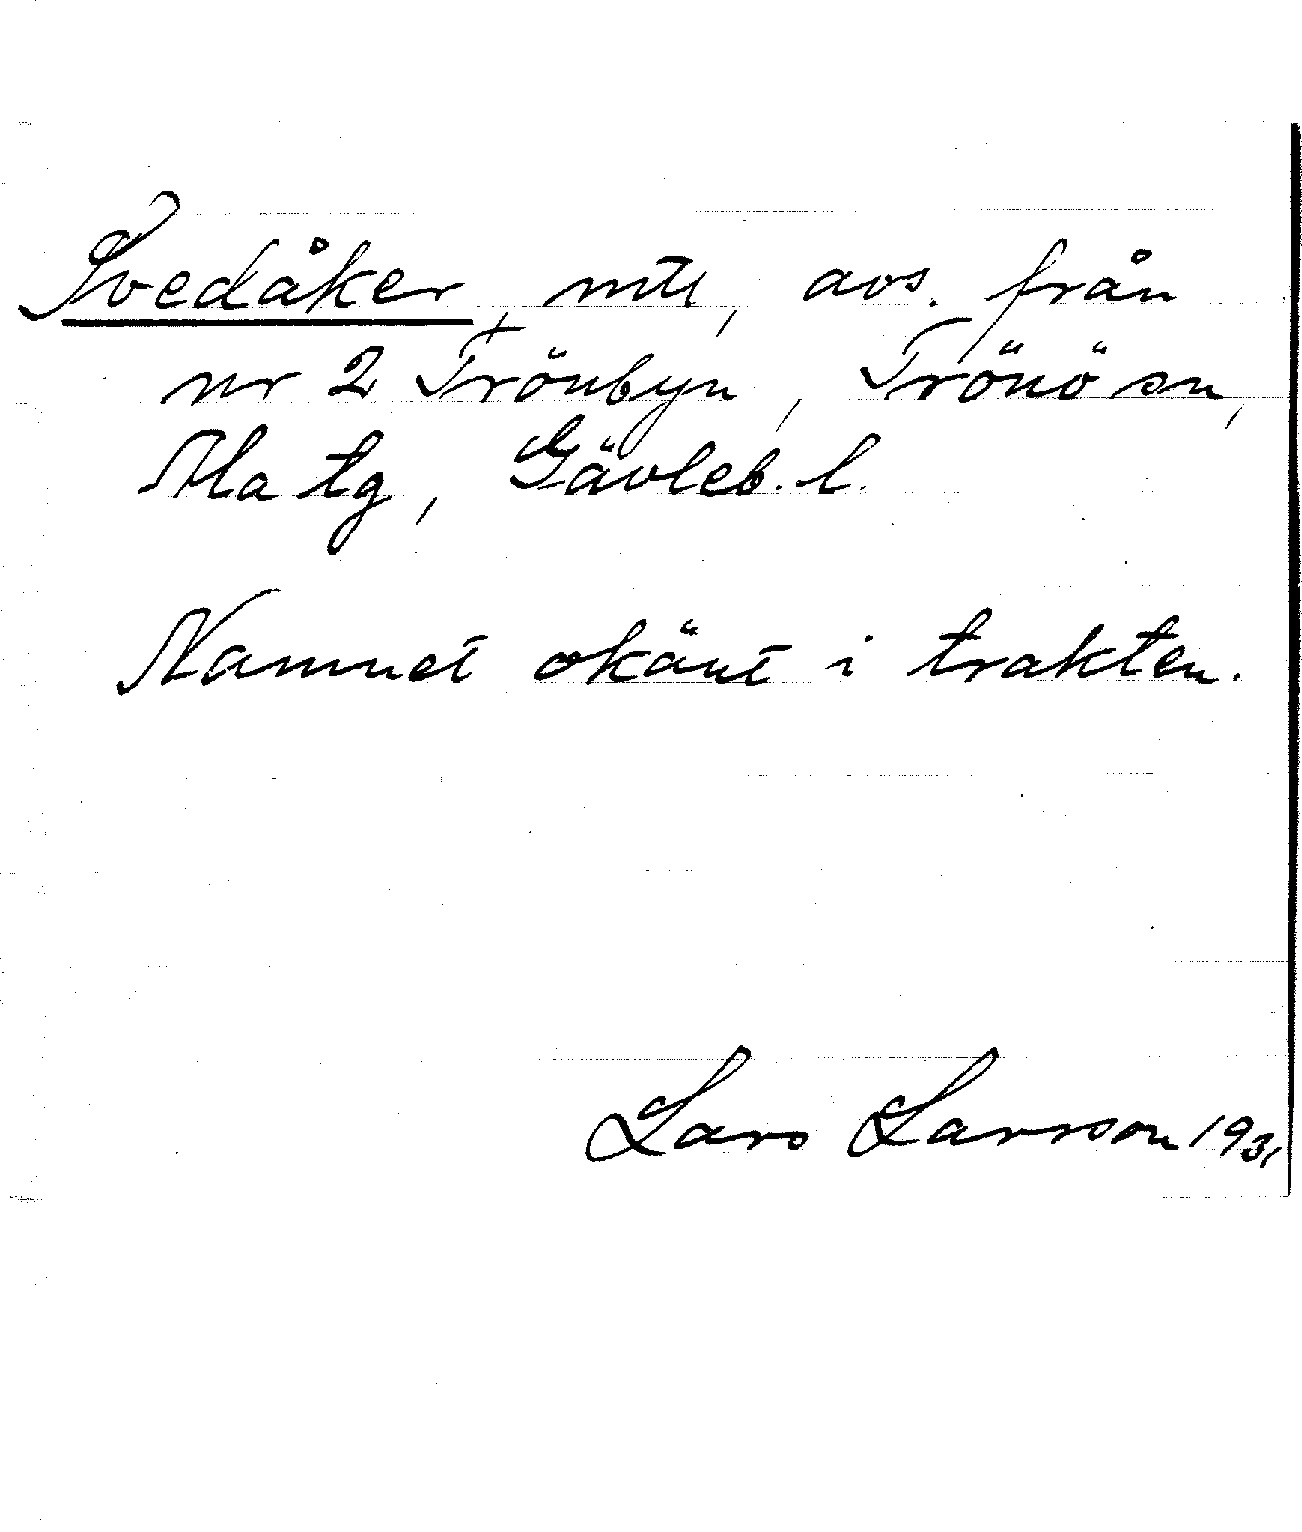 Svedåker, mtl, avs. från
nr 2 Trönbyn, Trönö sn,
Ala tg, Gävleb. l.
Namnet okänt i trakten.
Lars Larsson 1931